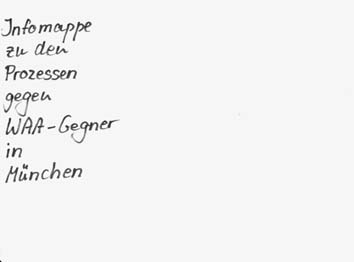 Infomappe
zu den
Prozessen
gegen
WAA-Gegner
in
München